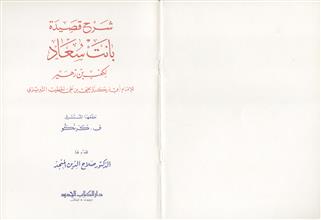 شرح قصيدة
بانت سعاد
لكعب بن زهير
للإمام أبي زكريا يحيى بن علي الخطيب التبريزي
حققها المستشرق
ف. كرنكو
قدم لها
الدكتور صلاح الدين المنجد
دار الكتاب الجديد